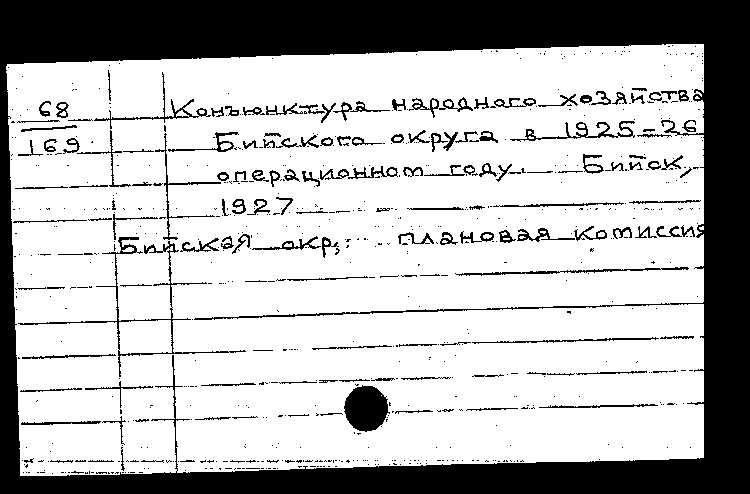 68
169
Конъюнктура народного хозяйства
Бийского округа в 1925-26
операционном году. Бийск,
1927
Бийская окр. плановая комиссия